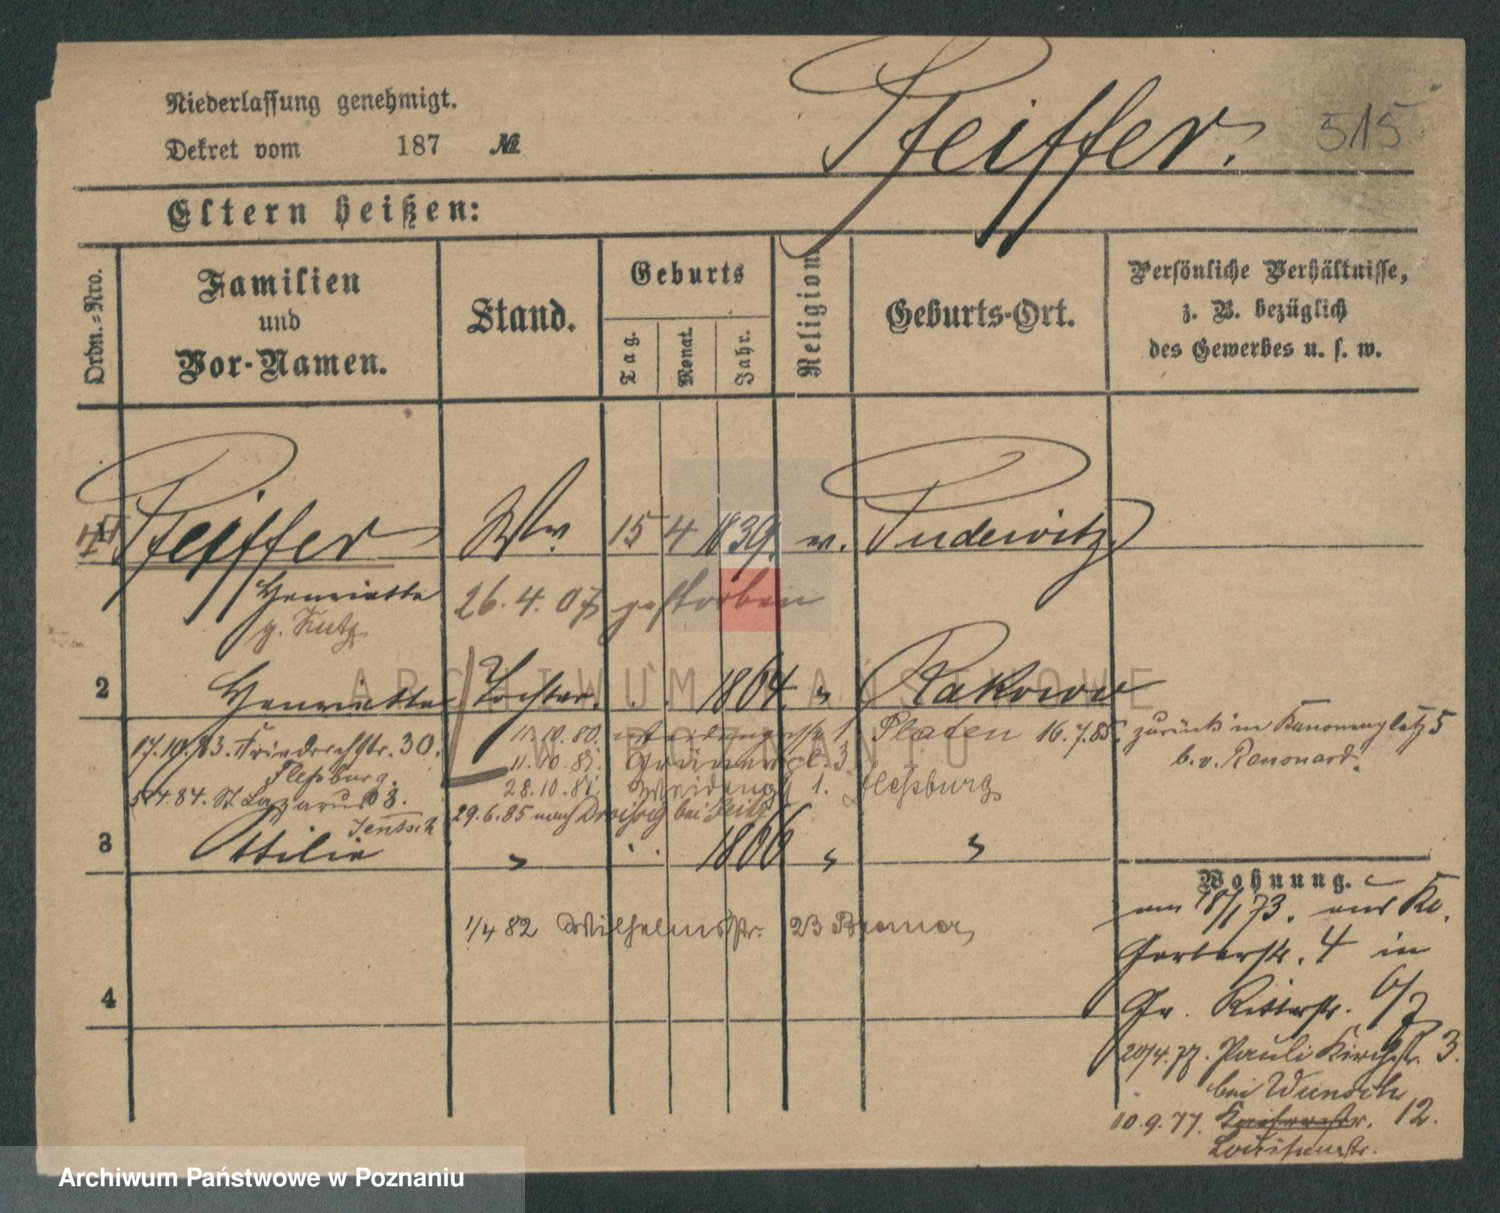 Niederlassung genehmigt.
Dekret vom 187 №
Pfeiffer. 515
Eltern heißen:
Ordn.-Nro.
Familien und Vor-Namen.
Stand.
Geburts
Tag. Monat. Jahr.
Religion
Geburts-Ort.
Persönliche Verhältnisse,
z. B. bezüglich
des Gewerbes u. s. w.
1 Pfeiffer Wv. 15 4 1839. Pudewitz
Henriette 26. 4. 07 gestorben
g. Kutz
2 Henriette Tochter. 1864. " Rakowo
17.10.83. Friedrichstr. 30. 11.10.80. 1. Platen 16.7.85. zurück in Kanonenplatz 5
Flessburg. 11.10.81. 3 b. v. Renonard.
84. St. Lazarus 28.10.81. 1. Flessburg
Jentsch 29.6.85 nach bei Zeitz
3 Ottilie " 1866 " "
Wohnung.
18/1 73. aus Kl.
1/4 82 Wilhelmstr. 23
Gerberstr. 4 in
4
Gr. Ritterstr. 6/7
20/4.77. Pauli Kirchstr. 3.
bei Wunsch
10.9.77. 12.
Louisenstr.
ARCHIWUM PAŃSTWOWE
W POZNANIU
Archiwum Państwowe w Poznaniu